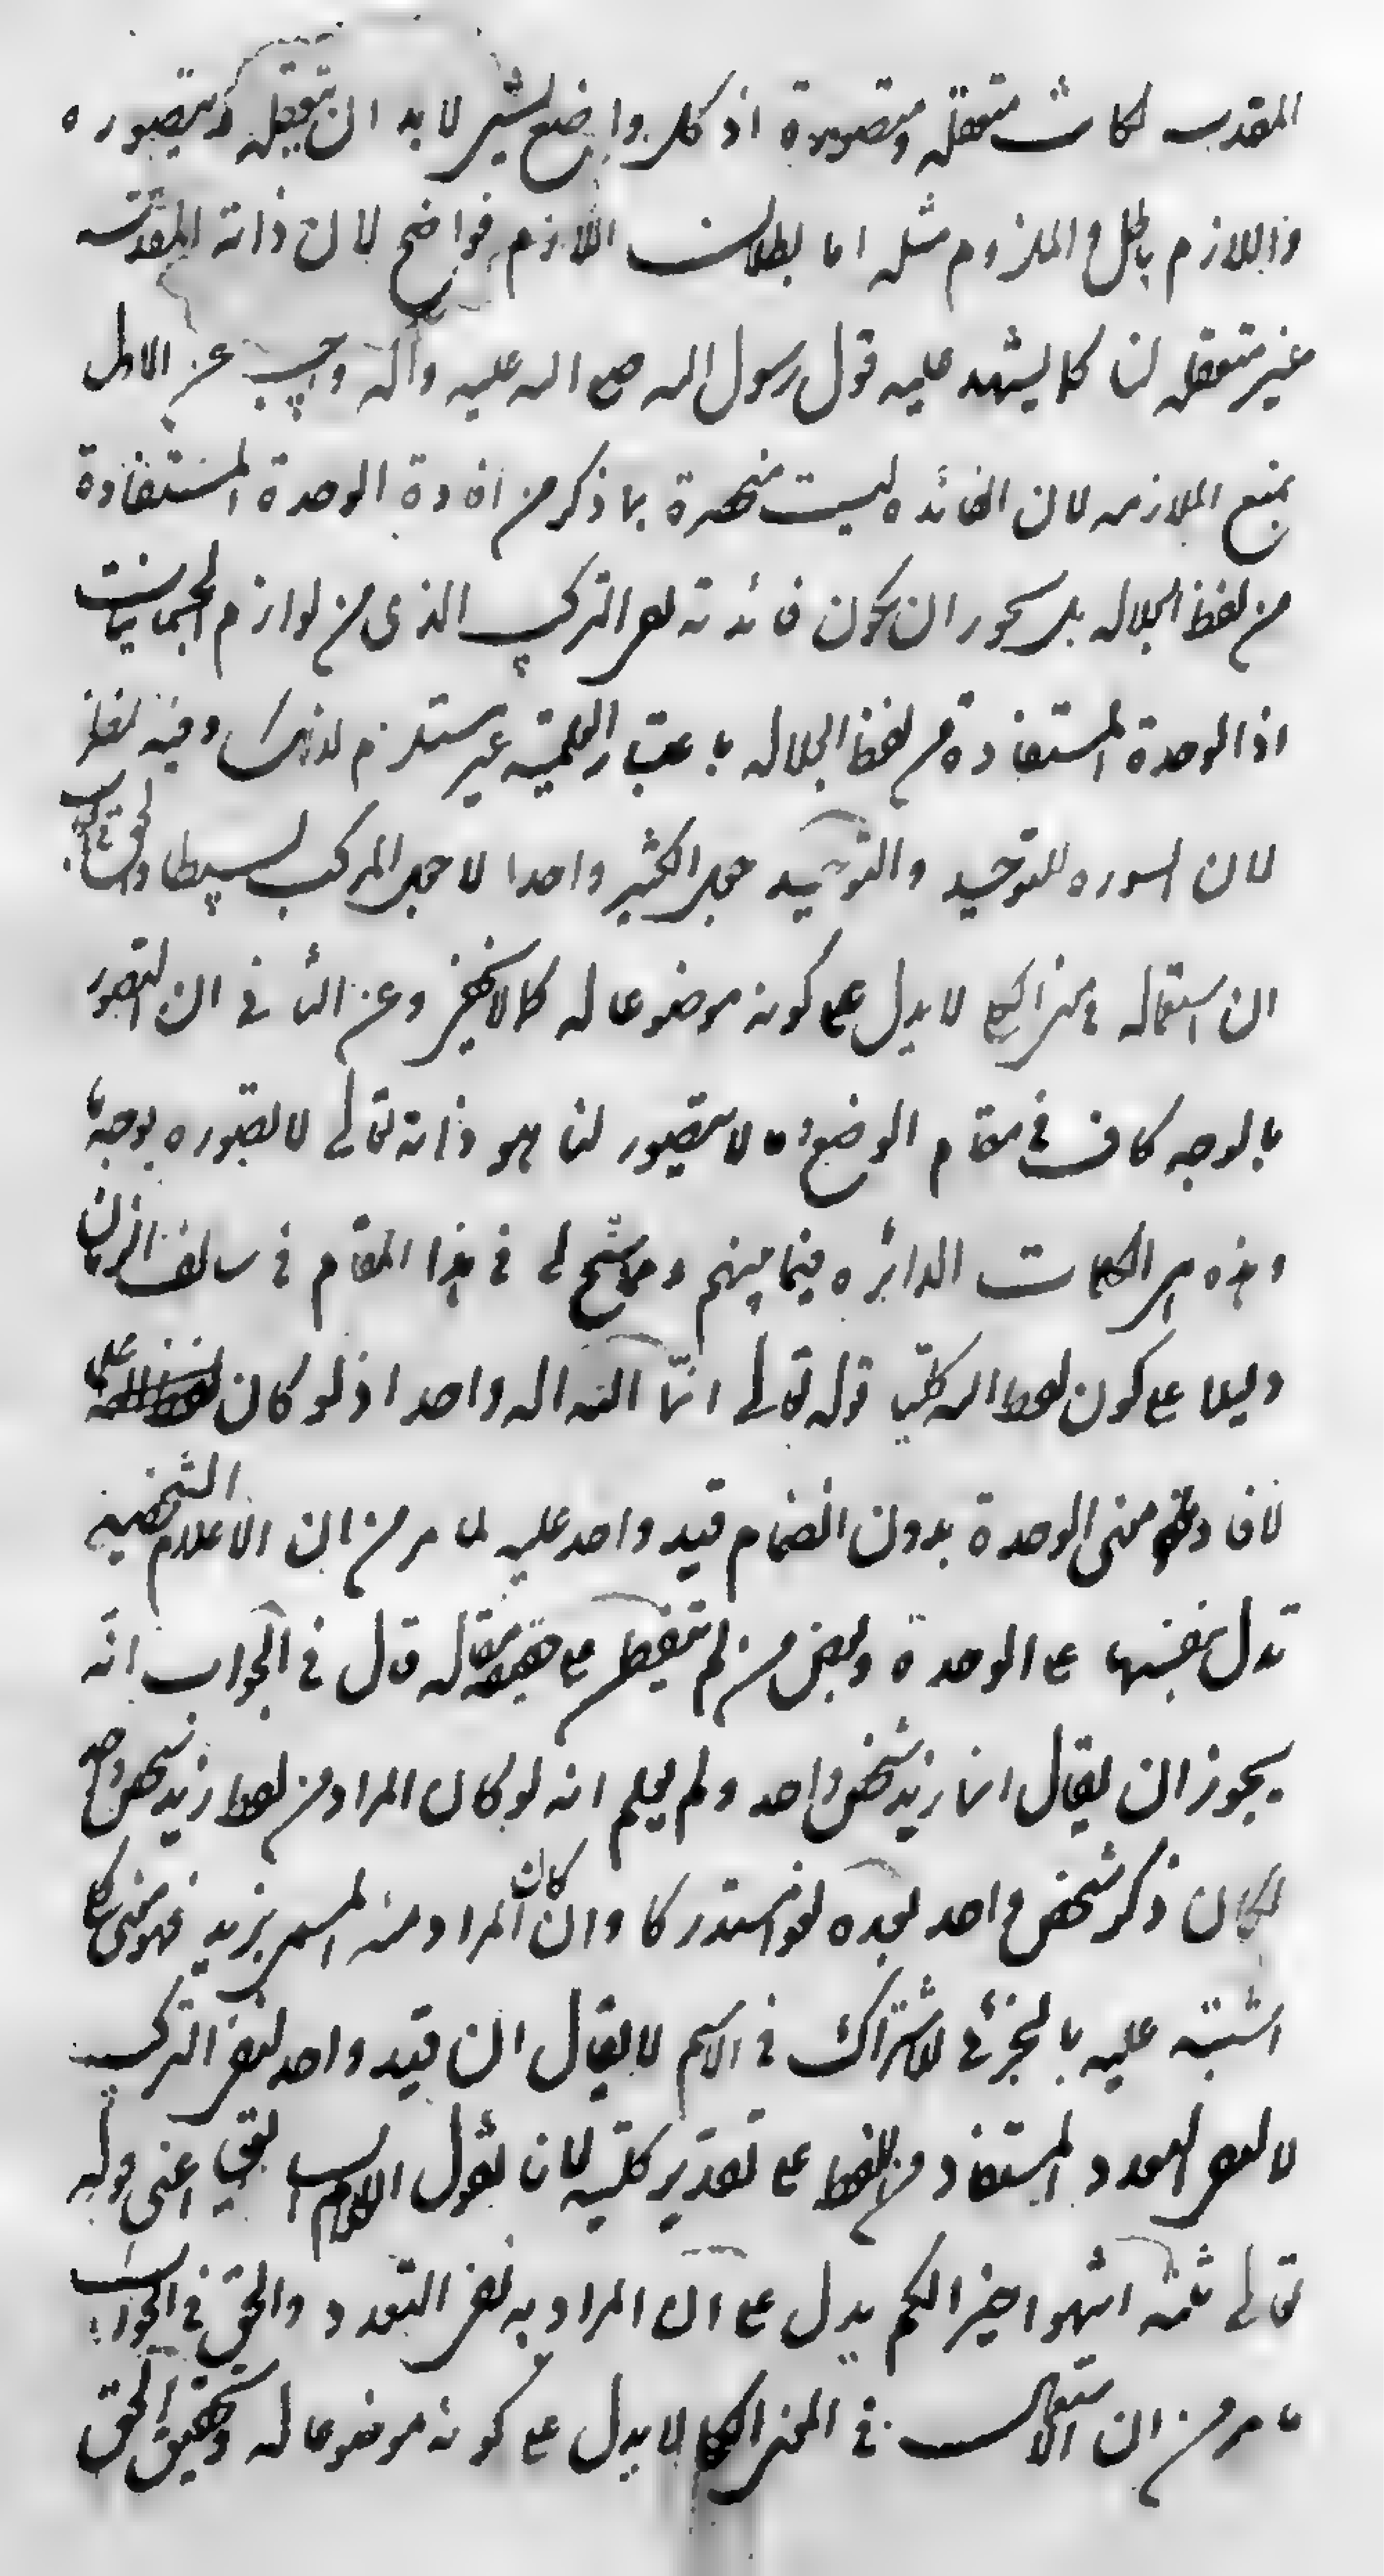 المقدسه لكانت متعقلة ومتصورة اذ كل واضع لشئ لابد ان يتعقله ويتصوره
واللازم باطل والملزوم مثله اما بطلان اللازم فواضح لان ذاته المقدسه
غير متعقله لنا كما يشهد عليه قول رسول الله صلى الله عليه وآله واجيب عن الاول
بمنع الملازمه لان الفائده ليست منحصرة بما ذكر من افادة الوحدة المستفادة
من لفظ الجلاله بل يجوز ان يكون فائدته نفى التركيب الذى من لوازم الجسمانيات
اذ الوحدة المستفادة من لفظ الجلاله باعتبار العلمية غير مستلزم لذلك وفيه نظر
لان السوره للتوحيد والتوحيد جعل الكثير واحدا لا جعل المركب بسيطا والحق فى الجواب
ان استعماله فى معنى الكلى لا يدل على كونه موضوعا له كما لا يخفى وعن الثانى ان التصور
بالوجه كاف فى مقام الوضع وما لا يتصور لنا هو ذاته تعالى لا تصوره بوجه ما
وهذه هى الكلمات الدائره فيما بينهم ومما سنح لى فى هذا المقام فى سالف الزمان
دليلا على كون لفظ الله كليا قوله تعالى انما الله اله واحد اذ لو كان علما
لافاد معنى الوحدة بدون انضمام قيد واحد عليه لما مر من ان الاعلام الشخصيه
تدل بنفسها على الوحدة وبعض من لم يتفطن على حقيقة مقاله قال فى الجواب انه
يجوز ان يقال انما زيد شخص واحد ولم يعلم انه لو كان المراد من لفظ زيد شخص واحد
لكان ذكر شخص واحد بعده لغوا مستدركا وان كان المراد منه المسمى بزيد فهو معنى كلى
اشتبه عليه بالجزئى للاشتراك فى الاسم لا يقال ان قيد واحد لنفى التركيب
لا لنفى التعدد المستفاد من اللفظ على تقدير كليته لانا نقول الكلام السابق اعنى قوله
تعالى ثلثه انتهوا خيرا لكم يدل على ان المراد به نفى التعدد والحق فى الجواب
ما مر من ان الاستعمال فى المعنى الكلى لا يدل على كونه موضوعا له وتحقيق الحق